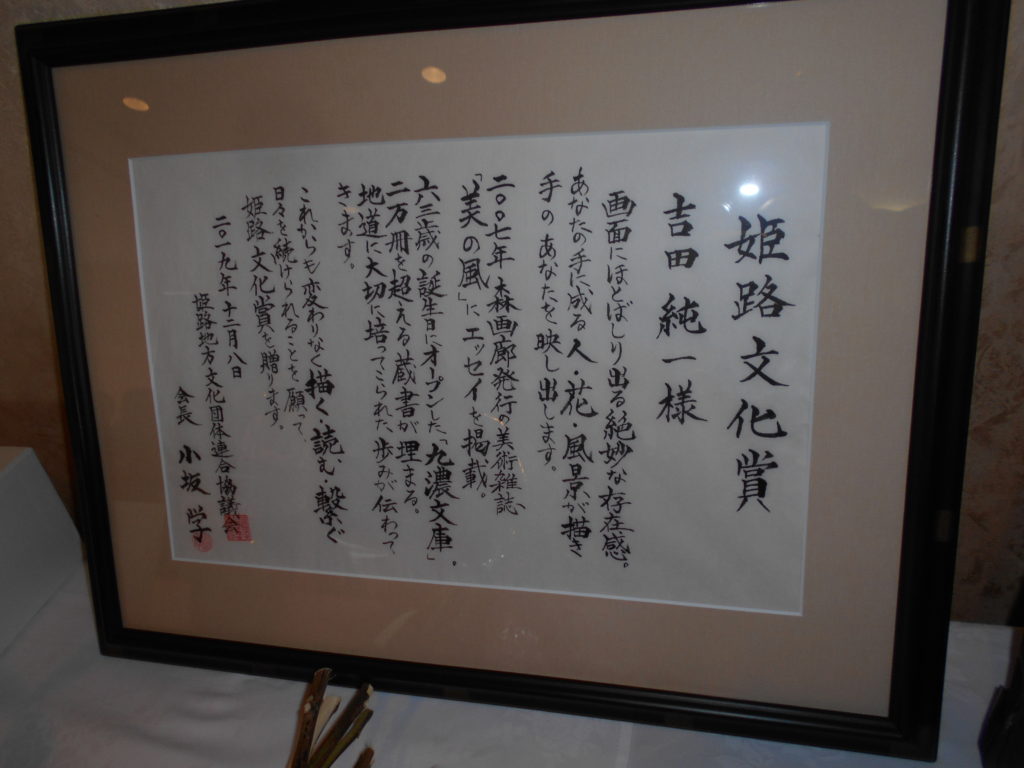 姫路文化賞
吉田純一様
画面にほどばしり出る絶妙な存在感。
あなたの手に成る人・花・風景が描き
手のあなたを映し出します。
二〇〇七年大森画廊発行の美術雑誌、
「美の風」にエッセイを掲載。
六三歳の誕生日にオープンした「九濃文庫」。
二万冊を超える蔵書が埋まる。
地道に大切に培ってこられた歩みが伝わって
きます。
これからも変わりなく描く・読む・繋ぐ
日々を続けられることを願って、
姫路文化賞を贈ります。
二〇一九年十二月八日
姫路地方文化団体連合協議会
会長 小坂学